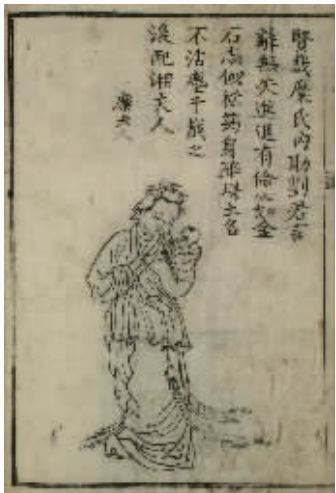 賢哉糜氏內助劉君言
辭無失進退有倫心如金
石志似松筠身雖土名
不沾塵千歲之
後配湘夫人
糜夫人